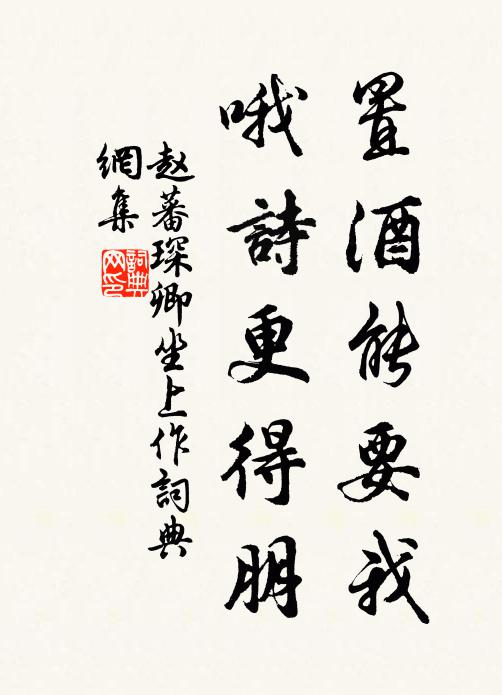 置酒能要我
哦詩更得朋
赵蕃琛卿坐上作詞典
網集
詞典
网印